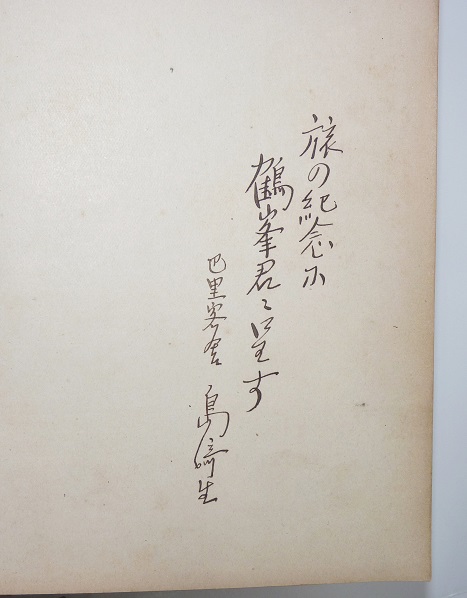 旅の紀念に
鶴峯君に呈す
巴里客舎 島崎生